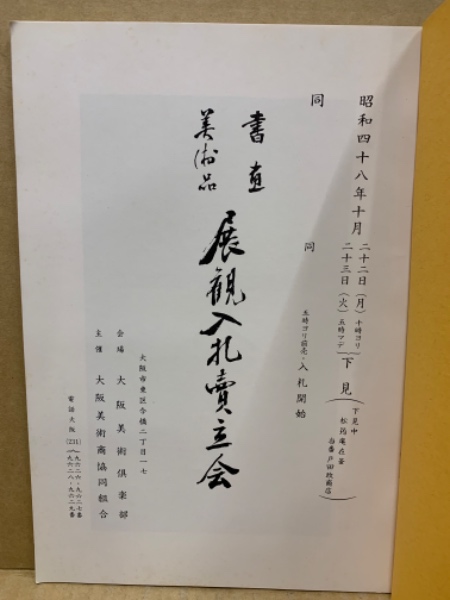 昭和四十八年十月
二十二日（月）十時ヨリ
二十三日（火）五時マデ
下見
下見中
松花庵在釜
同
同
五時ヨリ前売・入札開始
書画
美術品
展観入札賣立会
大阪市東区今橋二丁目一七
会場 大阪美術倶楽部
主催 大阪美術商協同組合
電話大阪(231)九六二六・九六二七番
九六二八・九六二九番